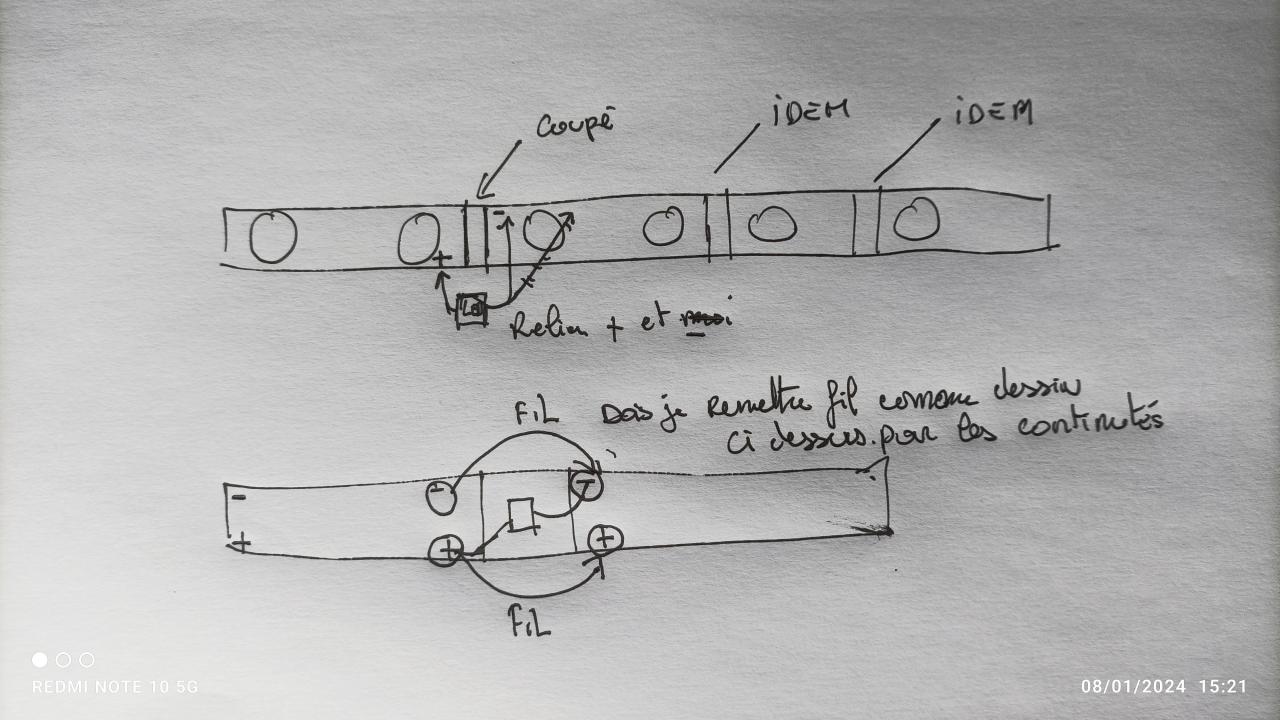 Coupé
iDEM
iDEM
-
+
Relier + et
-
FiL
Dois je Remettre fil comme dessin
ci dessus. pour les continutés
-
-
-
+
+
+
FiL
REDMI NOTE 10 5G
08/01/2024 15:21